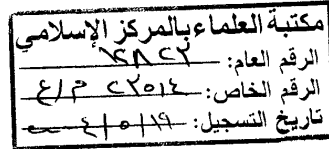 مكتبة العلماء بالمركز الإسلامي
الرقم العام:
الرقم الخاص: ٢٢٥١٤ م/ع
تاريخ التسجيل: ١٩/٥/٤